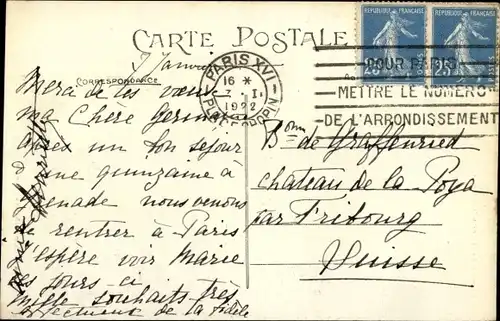 CARTE POSTALE
CORRESPONDANCE
RÉPUBLIQUE FRANÇAISE
RÉPUBLIQUE FRANÇAISE
25
25
PARIS XVI
16 *
7 - I
1922
PL. CHOPIN
POUR PARIS
METTRE LE NUMERO
DE L'ARRONDISSEMENT
7 Janvier
Merci de tes vœux
ma Chère Germaine
après un bon séjour
d'une quinzaine à
nous venons
de rentrer à Paris
J'espère voir Marie
ces jours-ci
Mille souhaits très
affectueux de la fidèle
Bonne de Graffenried
château de la Poya
par Fribourg
Suisse